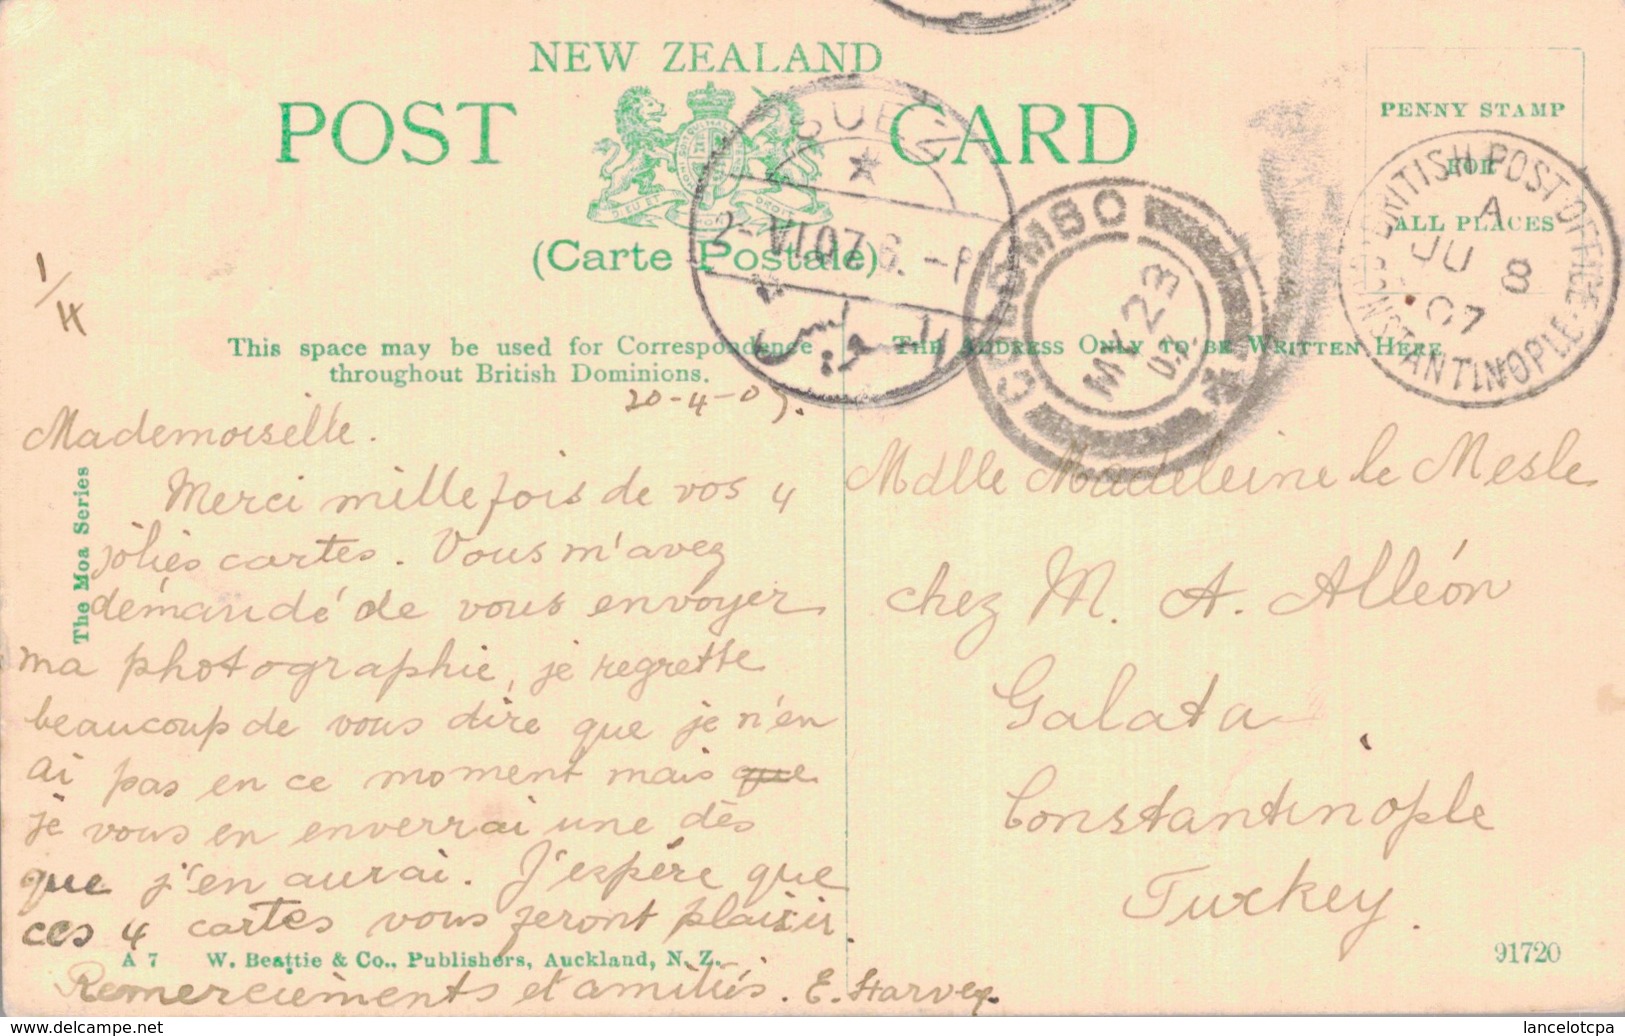 NEW ZEALAND
POST CARD
(Carte Postale)
PENNY STAMP
FOR
ALL PLACES
SUEZ
2-VI 07 6.-P
COLOMBO
MY 23
07
BRITISH POST OFFICE
A
JU 8
07
CONSTANTINOPLE
1/4
This space may be used for Correspondence
throughout British Dominions.
THE ADDRESS ONLY TO BE WRITTEN HERE
20-4-07.
Mademoiselle.
Merci mille fois de vos 4
jolies cartes. Vous m'avez
démandé de vous envoyer
ma photographie, je regrette
beaucoup de vous dire que je n'en
ai pas en ce moment mais que
je vous en enverrai une dès
que j'en aurai. J'espére que
ces 4 cartes vous feront plaisir.
Remerciements et amitiés. E. Harvey.
The Moa Series
A 7 W. Beattie & Co., Publishers, Auckland, N. Z.
Mdlle Madeleine le Mesle
chez M. A. Alléon
Galata
Constantinople
Turkey.
91720
delcampe.net
lancelotcpa